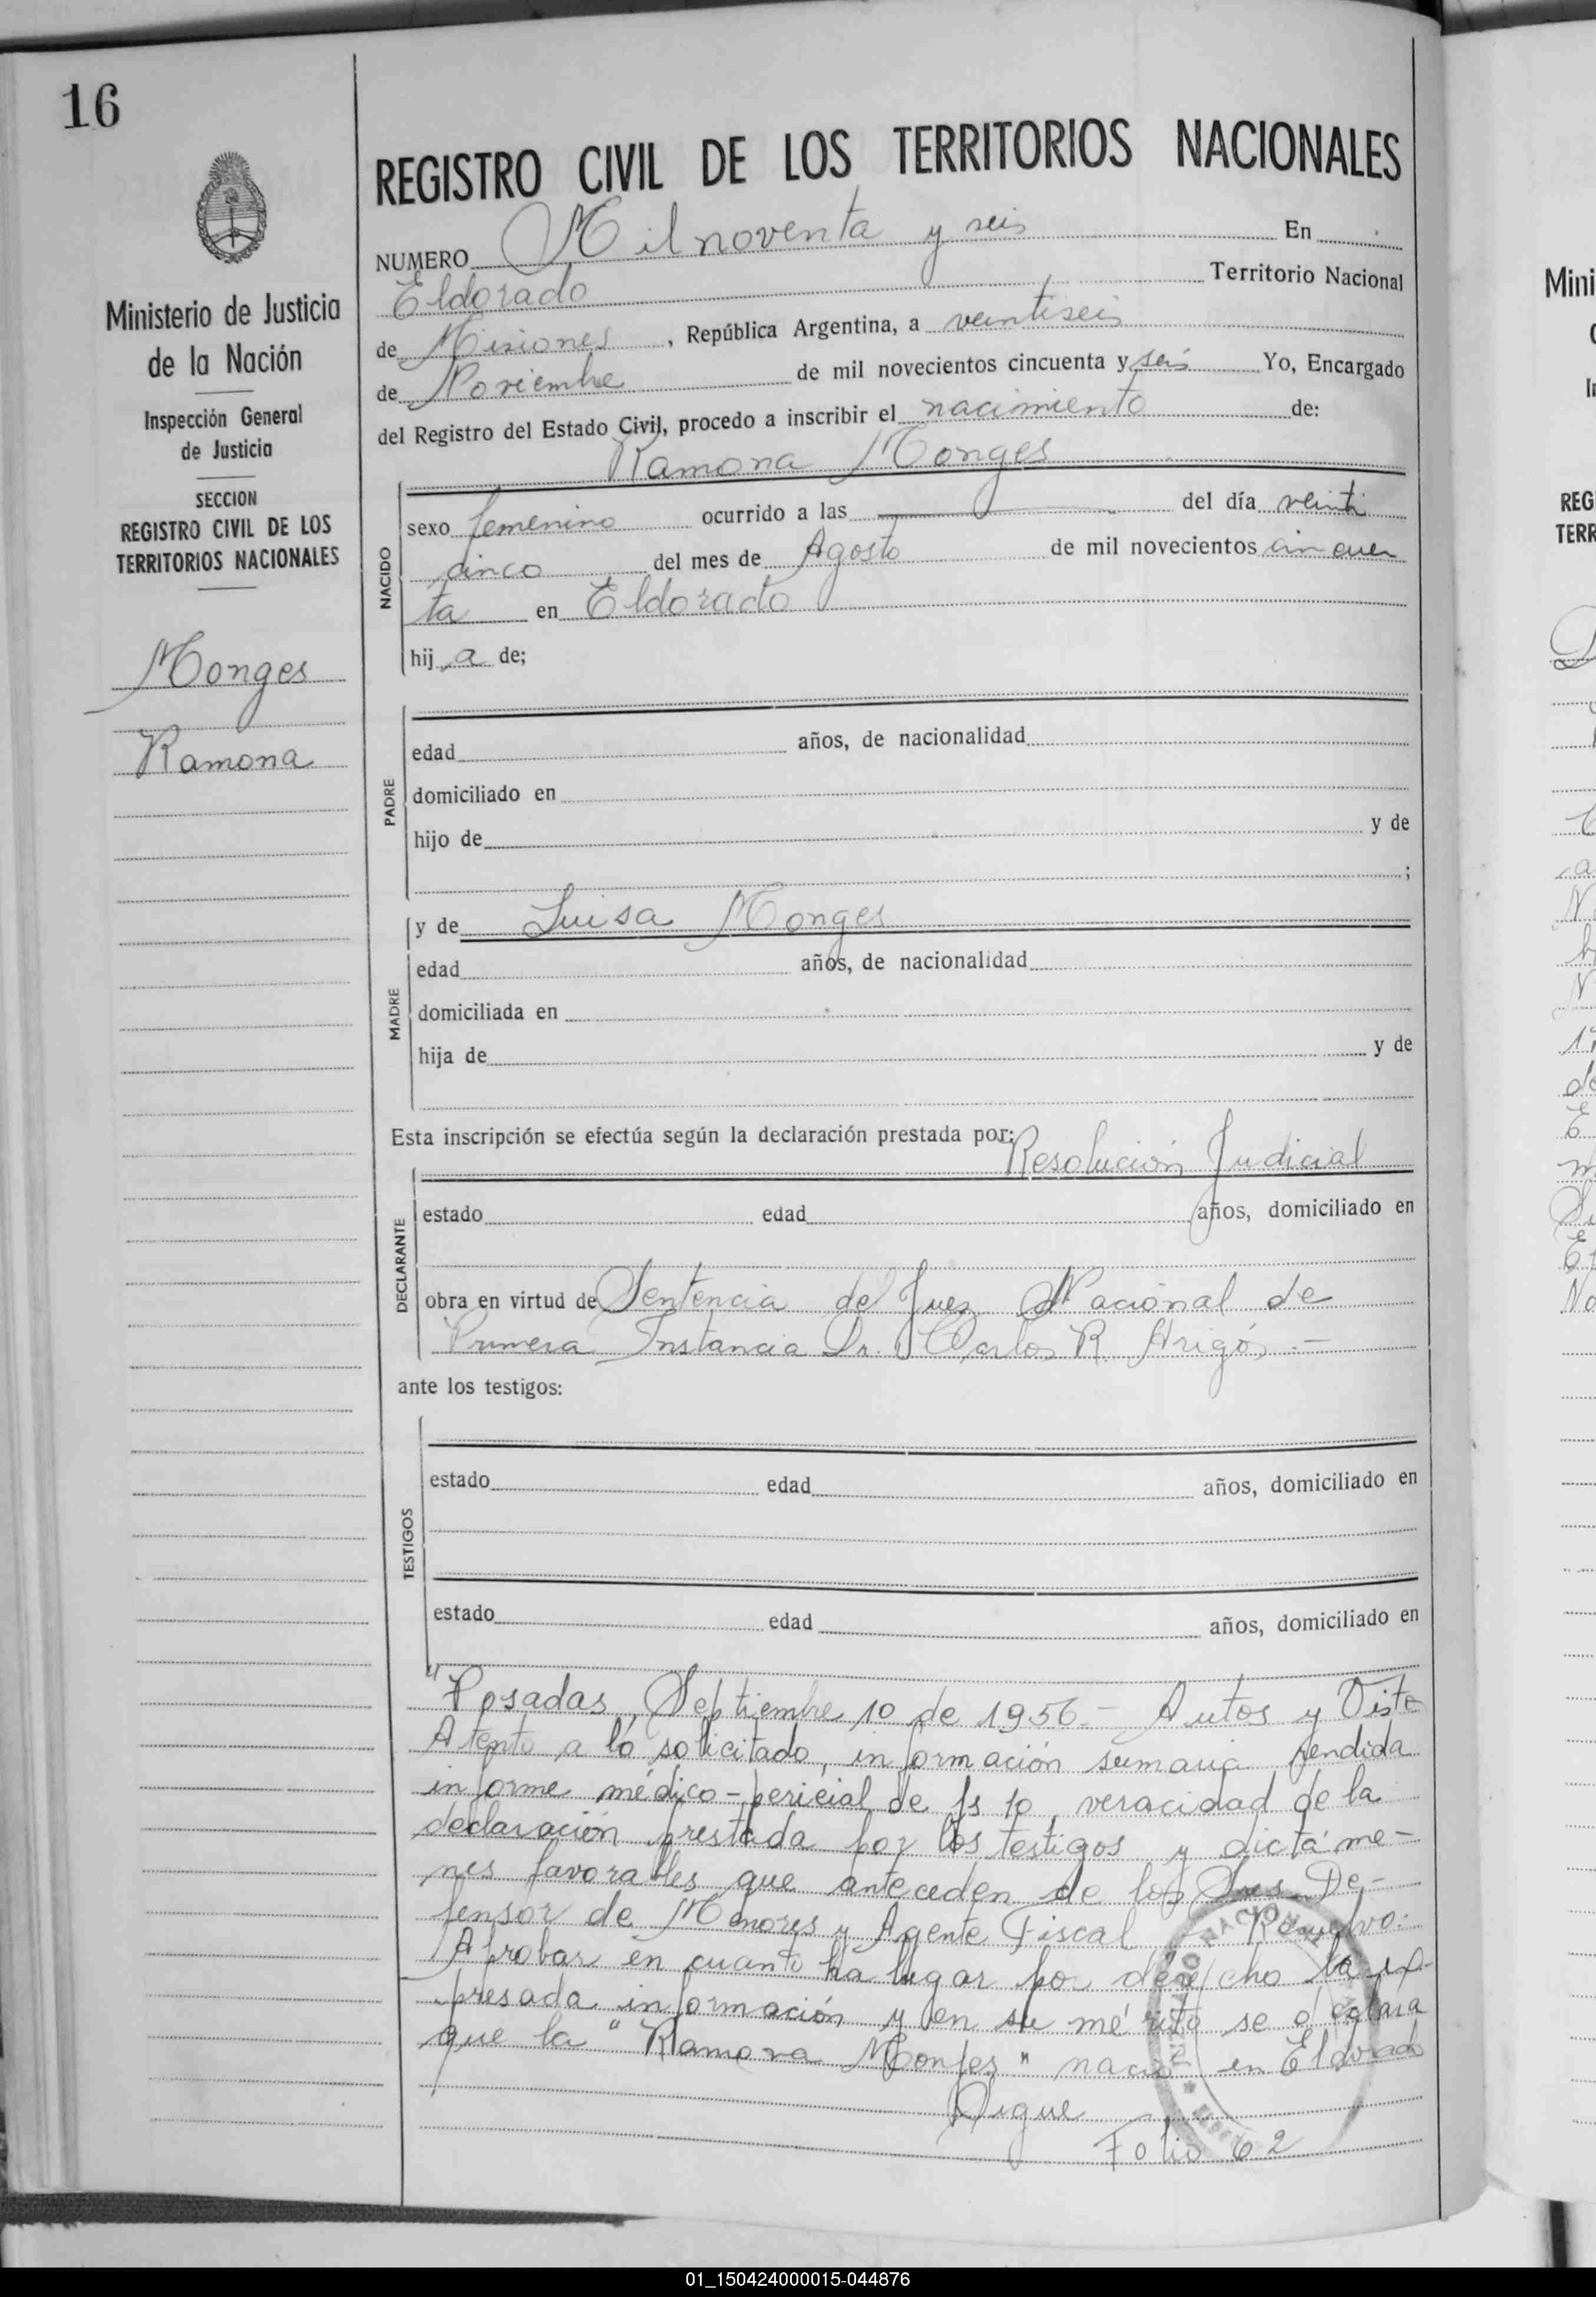 16
Ministerio de Justicia
de la Nación
Inspección General
de Justicia
SECCION
REGISTRO CIVIL DE LOS
TERRITORIOS NACIONALES
Monges
Ramona
REGISTRO CIVIL DE LOS TERRITORIOS NACIONALES
NUMERO Mil noventa y seis En
Eldorado Territorio Nacional
de Misiones, República Argentina, a veintiseis
de Noviembre de mil novecientos cincuenta y seis Yo, Encargado
del Registro del Estado Civil, procedo a inscribir el nacimiento de:
Ramona Monges
NACIDO
sexo femenino ocurrido a las del día veinti
cinco del mes de Agosto de mil novecientos cincuen
ta en Eldorado
hij a de;
PADRE
edad años, de nacionalidad
domiciliado en
hijo de y de
;
MADRE
y de Luisa Monges
edad años, de nacionalidad
domiciliada en
hija de y de
Esta inscripción se efectúa según la declaración prestada por:
Resolución Judicial
DECLARANTE
estado edad años, domiciliado en
obra en virtud de Sentencia del Juez Nacional de
Primera Instancia Dr. Carlos R. Arigós.-
ante los testigos:
TESTIGOS
estado edad años, domiciliado en
estado edad años, domiciliado en
"Posadas, Septiembre 10 de 1956.- Autos y Visto
Atento a lo solicitado, información sumaria rendida
informe médico-pericial de fs 10, veracidad de la
declaración prestada por los testigos y dictáme-
nes favorables que anteceden de los Sres. De-
fensor de Menores y Agente Fiscal Resuelvo:
Aprobar en cuanto ha lugar por derecho la ex-
presada información y en su mérito se declara
que la "Ramona Monges" nació en Eldorado
Sigue
Folio 62
01_150424000015-044876